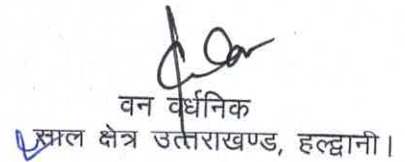 वन वर्धनिक
साल क्षेत्र उत्तराखण्ड, हल्द्वानी।